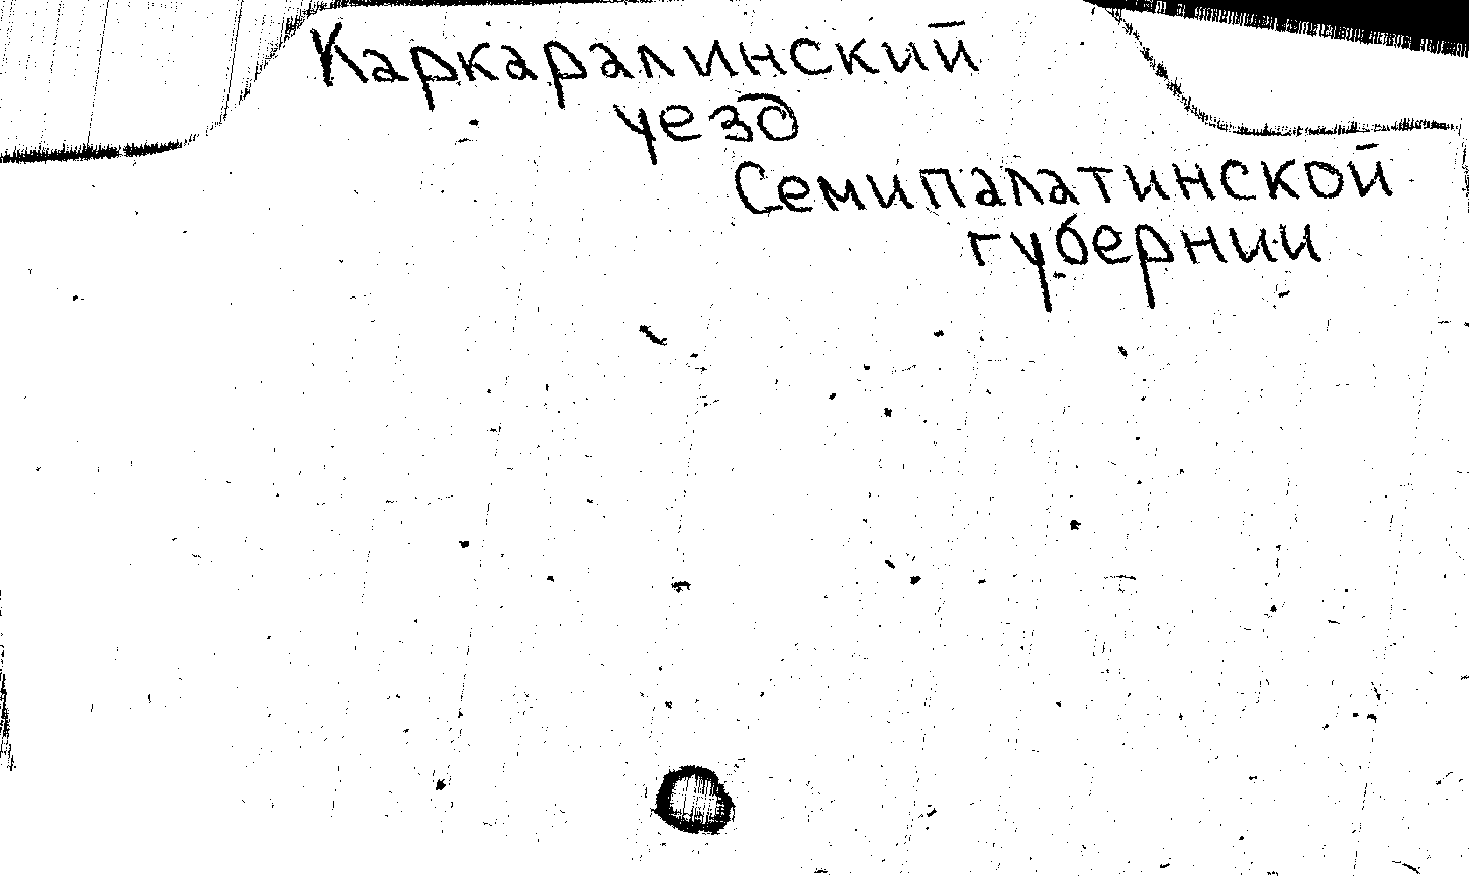 Каркаралинский
уезд
Семипалатинской
губернии